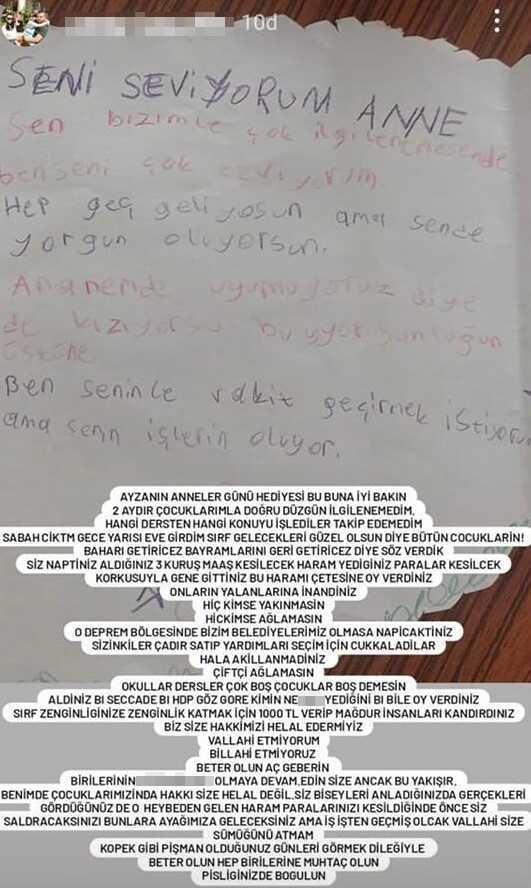 10d
SENİ SEVİYORUM ANNE
Sen bizimle çok ilgilenmesende
ben seni çok seviyorum.
Hep geç geliyosun ama sende
yorgun oluyorsun.
Ananemde uyumuyoruz diye
de kızıyorsun bu uyer gunluğun
üstüne
Ben seninle vakit geçirmek istiyoru
ama senn işlerin oluyor.
AYZANIN ANNELER GÜNÜ HEDİYESİ BU BUNA İYİ BAKIN
2 AYDIR ÇOCUKLARIMLA DOĞRU DÜZGÜN İLGİLENEMEDİM,
HANGİ DERSTEN HANGİ KONUYU İŞLEDİLER TAKİP EDEMEDİM
SABAH CİKTM GECE YARISI EVE GİRDİM SIRF GELECEKLERİ GÜZEL OLSUN DİYE BÜTÜN COCUKLARİN!
BAHARI GETİRİCEZ BAYRAMLARINI GERİ GETİRİCEZ DİYE SÖZ VERDİK
SİZ NAPTİNİZ ALDIĞINIZ 3 KURUŞ MAAŞ KESİLECEK HARAM YEDİGİNİZ PARALAR KESİLCEK
KORKUSUYLA GENE GİTTİNİZ BU HARAMİ ÇETESİNE OY VERDİNİZ
ONLARIN YALANLARINA İNANDİNİZ
HİÇ KİMSE YAKINMASİN
HİCKİMSE AĞLAMASIN
O DEPREM BÖLGESİNDE BİZİM BELEDİYELERİMİZ OLMASA NAPİCAKTİNİZ
SİZİNKİLER ÇADIR SATIP YARDIMLARI SEÇİM İÇİN CUKKALADİLAR
HALA AKİLLANMADİNİZ
ÇİFTÇİ AĞLAMASIN
OKULLAR DERSLER ÇOK BOŞ ÇOCUKLAR BOŞ DEMESİN
ALDİNİZ BI SECCADE BI HDP GÖZ GÖRE KİMİN NE YEDİĞİNİ BI BİLE OY VERDİNİZ
SIRF ZENGİNLİGİNİZE ZENGİNLİK KATMAK İÇİN 1000 TL VERİP MAĞDUR İNSANLARI KANDIRDINIZ
BİZ SİZE HAKKİMİZİ HELAL EDERMİYİZ
VALLAHİ ETMİYORUM
BİLLAHİ ETMİYORUZ
BETER OLUN AÇ GEBERİN
BİRİLERİNİN OLMAYA DEVAM,EDİN SİZE ANCAK BU YAKIŞIR,
BENİMDE ÇOCUKLARIMIZINDA HAKKI SİZE HELAL DEĞİL,SİZ BİSEYLERİ ANLADIĞINIZDA GERÇEKLERİ
GÖRDÜĞÜNÜZ'DE O HEYBEDEN GELEN HARAM PARALARINIZI KESİLDİĞİNDE ÖNCE SİZ
SALDIRACAKSINIZI BUNLARA AYAĞIMIZA GELECEKSİNİZ AMA İŞ İŞTEN GEÇMİŞ OLCAK VALLAHİ SİZE
SÜMÜĞÜNÜ ATMAM
KOPEK GİBİ PİŞMAN OLDUĞUNUZ GÜNLERİ GÖRMEK DİLEĞİYLE
BETER OLUN HEP BİRİLERİNE MUHTAÇ OLUN
PİSLİGİNİZDE BOGULUN